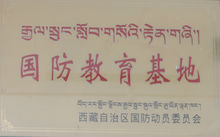 རྒྱལ་སྲུང་སློབ་གསོའི་རྟེན་གཞི།
国防教育基地
西藏自治区国防动员委员会